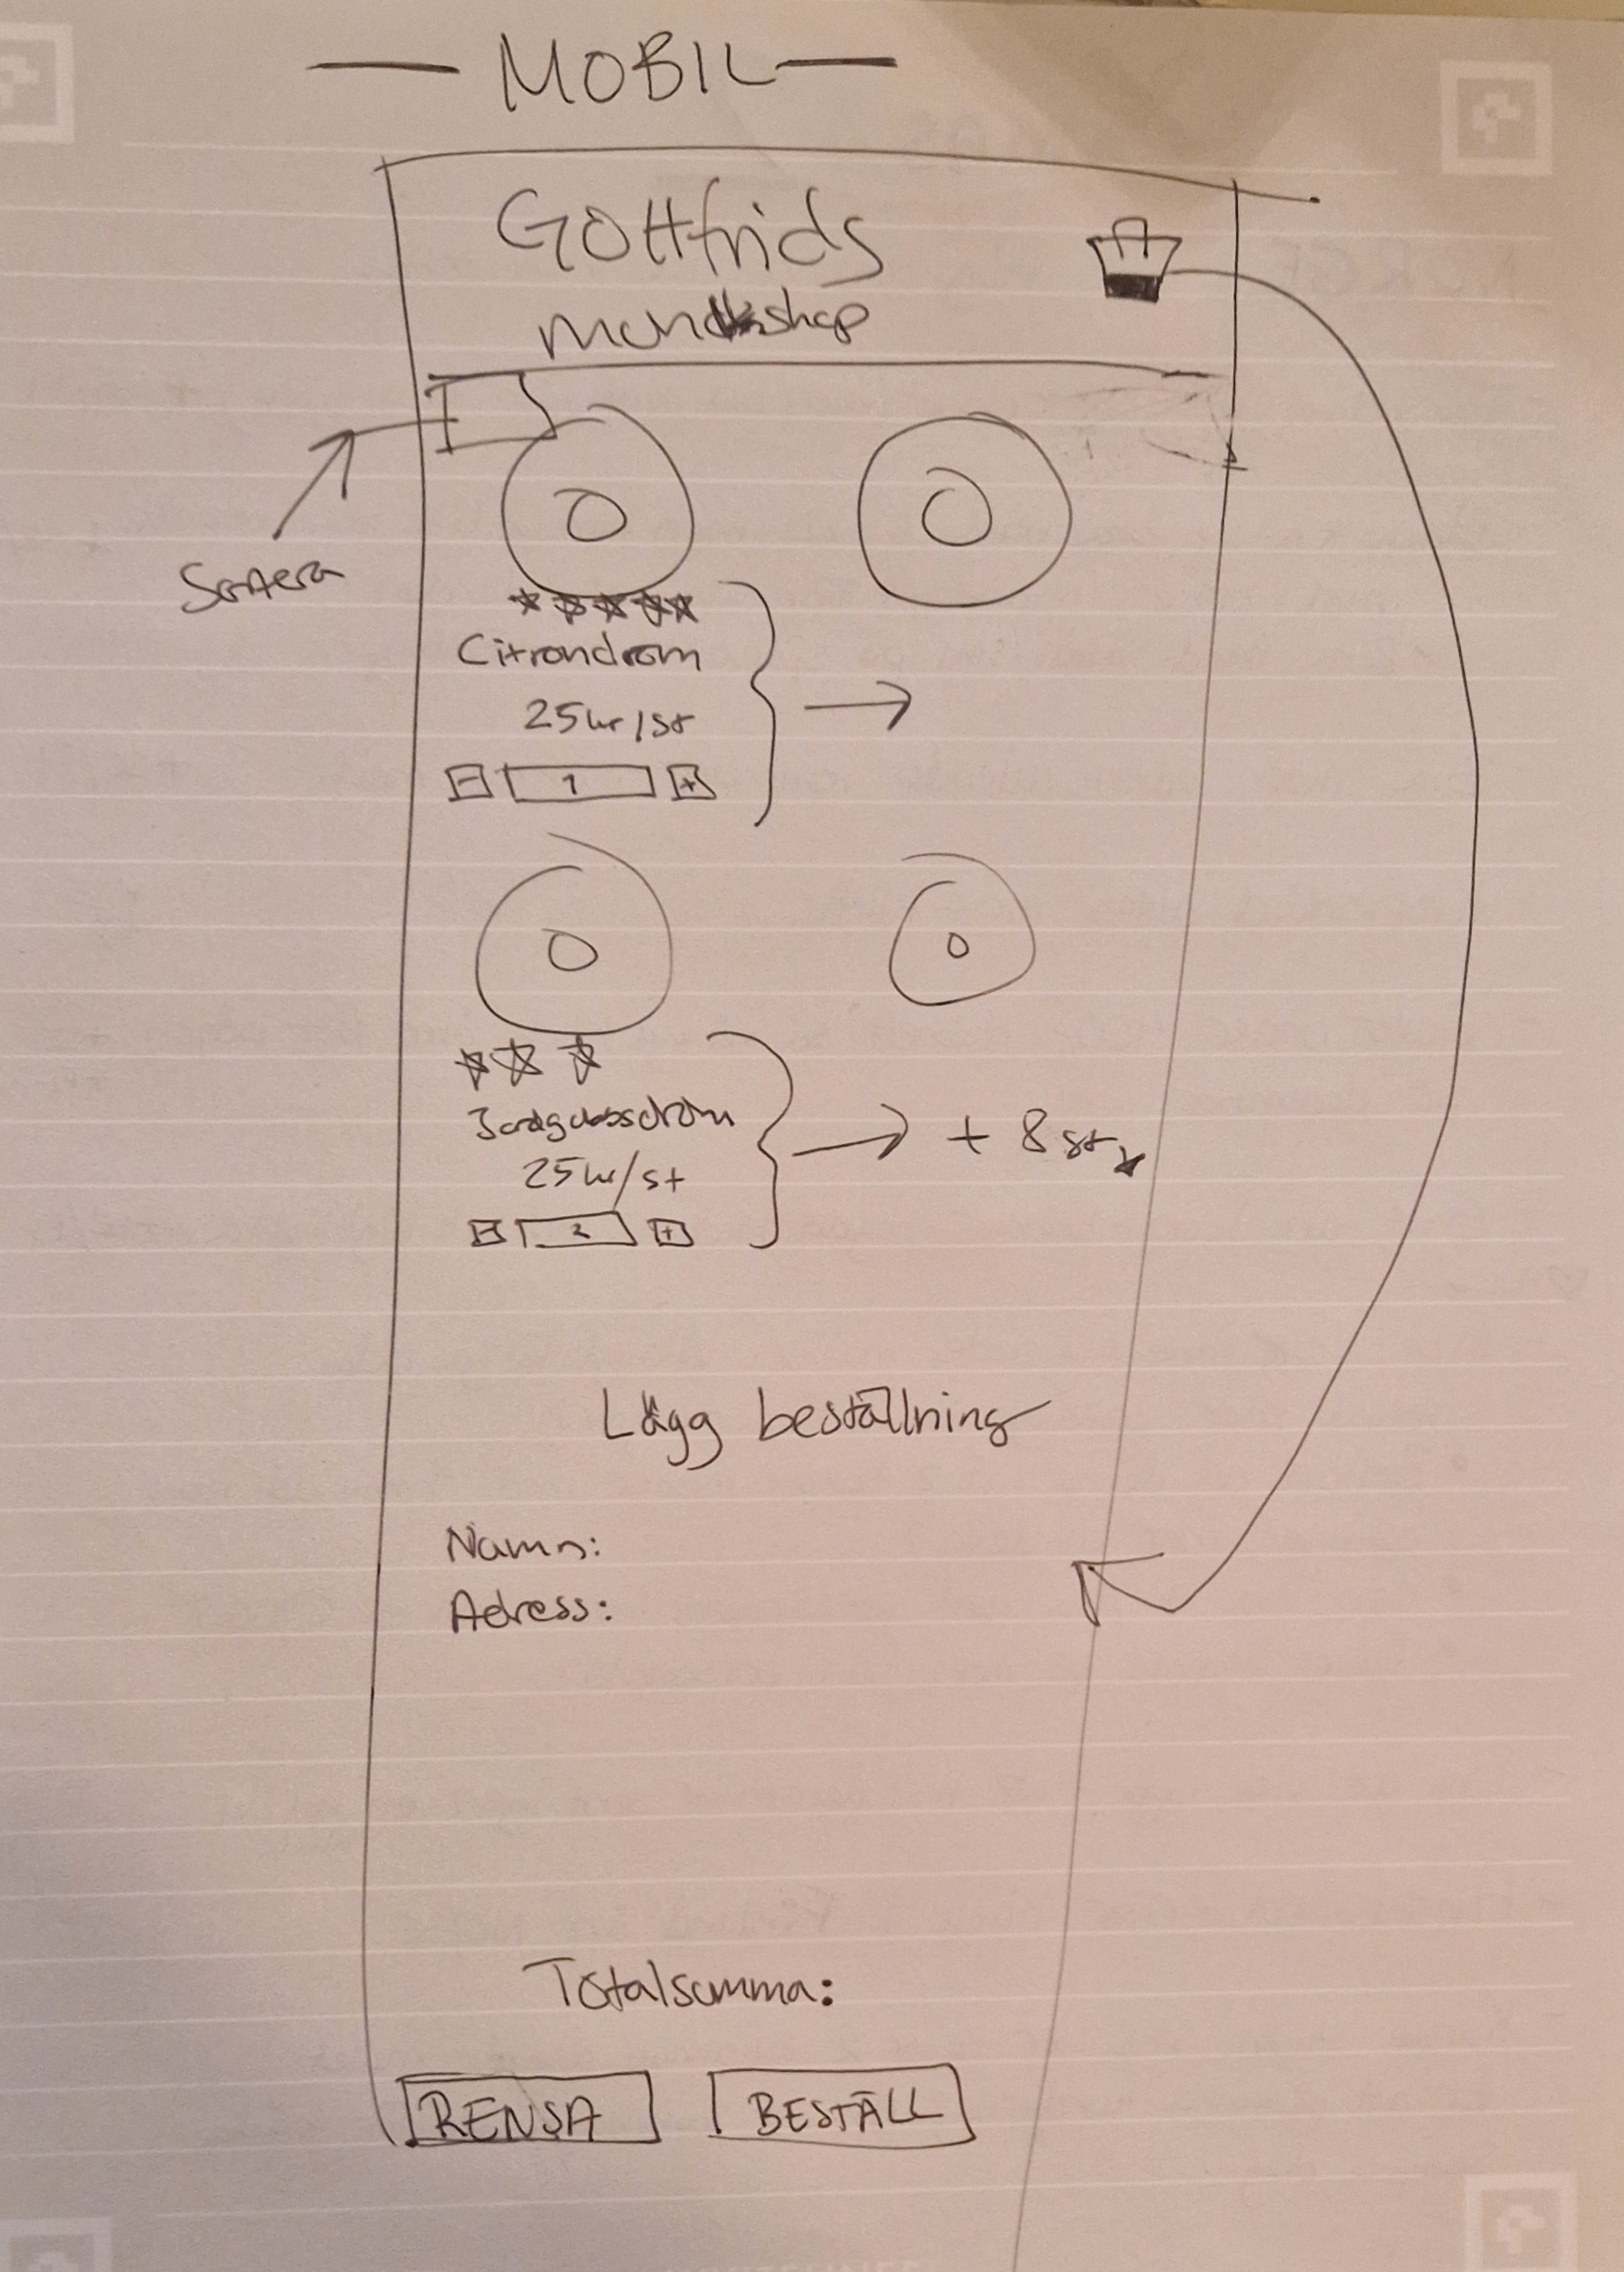 MOBIL
Gottfrids
munkshop
Sortera
Citrondröm
25kr/st
- 1 +
Jordgubbsdröm
25kr/st
- 2 +
+ 8 st
Lägg beställning
Namn:
Adress:
Totalsumma:
RENSA BESTÄLL